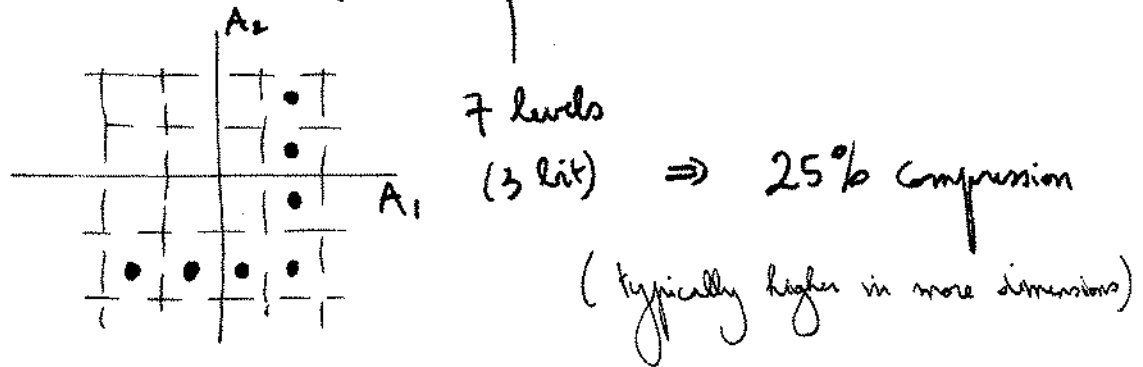 A₂
7 levels
(3 bit) ⇒ 25% compression
A₁
(typically higher in more dimensions)